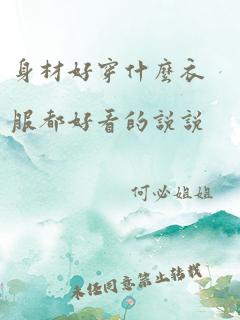 身材好穿什麼衣
服都好看的說說
何必姐姐
未任同意禁止转载